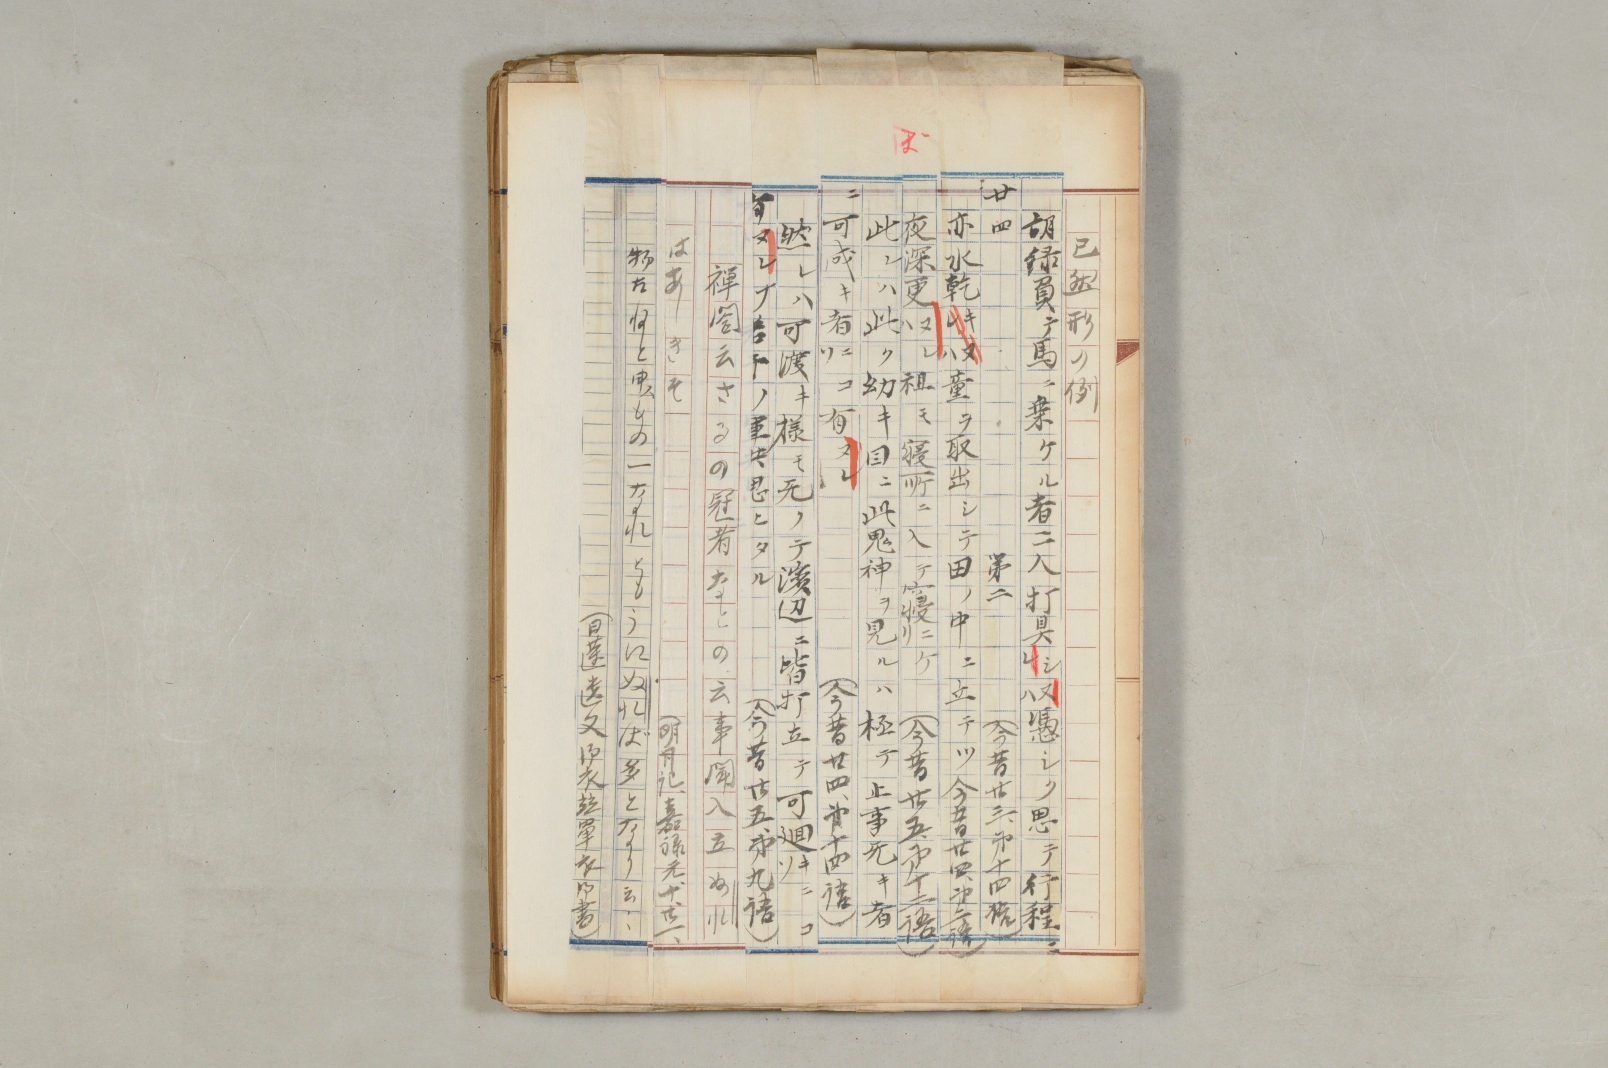 ば
已然形の例
胡録負テ馬ニ乗ケル者二人打具シヌレハ憑シク思テ行程ニ
(今昔廿三、第十四語)
廿四 第二
亦水乾キヌレハ童ヲ取出シテ田ノ中ニ立テツ(今昔廿四、第二語)
夜深更ヌレハ祖モ寝所ニ入テ寝ニケリ(今昔廿五、第十二語)
此レハ此ク幼キ目ニ此鬼神ヲ見ルハ極テ止事无キ者
ニ可成キ者ニコソ有ヌレ(今昔廿四、第十四語)
然レハ可渡キ様モ无クテ濱辺ニ皆打立テ可廻キニコソ
有ヌレ(今昔廿五、第九語)
禅閤云さるの冠者なとの云事聞入立ぬれ
はあしきそ(明月記、嘉禄元、十、廿一、)
物たねと申もの一なれともうゑぬれば多となり云々
(日蓮遺文